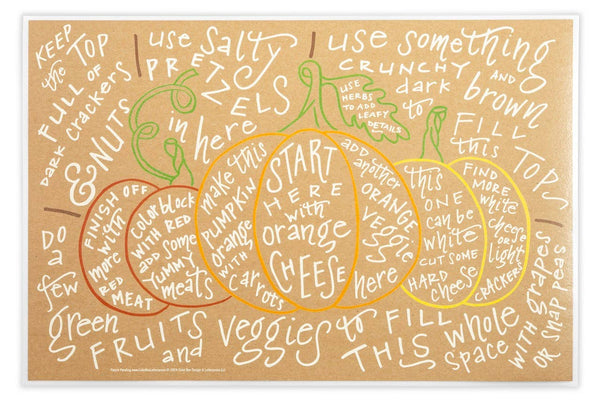 KEEP
the TOP
FULL OF
DARK CRACKERS
& NUTS
use salty
PRETZELS
in here
use something
CRUNCHY AND
dark brown
to
FILL
this
TOPS
USE
HERBS
TO ADD
LEAFY
DETAILS
FINISH OFF
with
more
RED
MEAT
color block
WITH RED
add some
YUMMY
meats
make this
PUMPKIN
orange
WITH
carrots
START
HERE
with
orange
CHEESE
ADD
another
ORANGE
veggie
here
this
ONE
can be
white
CUT SOME
HARD
cheese
FIND
MORE
white
cheese
OR
light
CRACKERS
DO
a
few
green
FRUITS
and
veggies to FILL
THIS whole
space
WITH grapes
OR SNAP PEAS